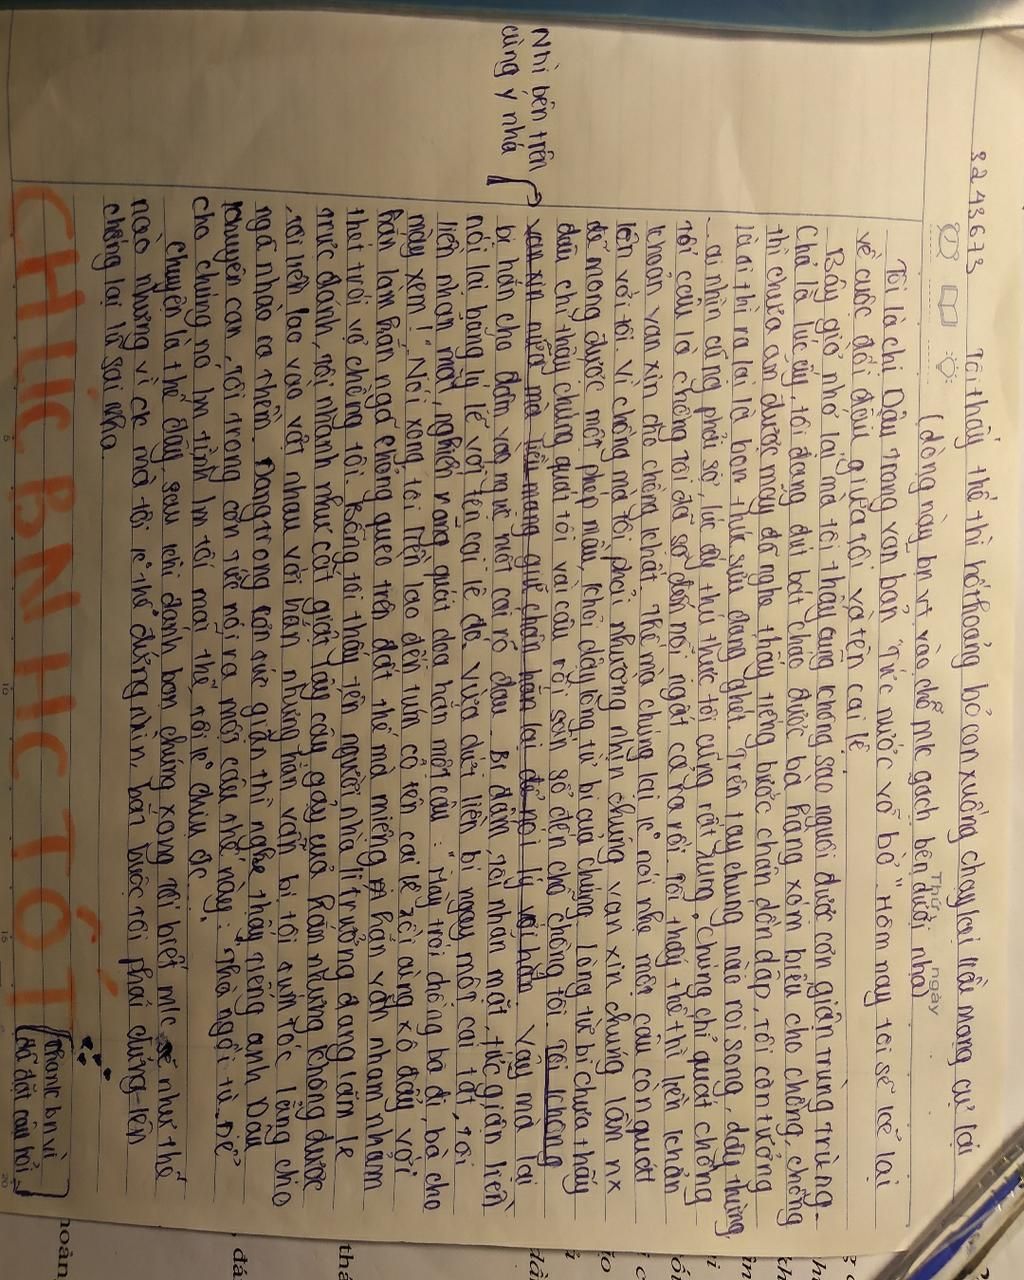 3243673
Tôi thấy thế thì hốt hoảng bỏ con xuống chạy lại liều mạng cự lại
(dòng này bn vt vào chỗ mk gạch bên dưới nha)
Thứ: ngày
Tôi là chị Dậu trong văn bản "Tức nước vỡ bờ". Hôm nay tôi sẽ kể lại
về cuộc đối đầu giữa tôi và tên cai lệ
Bây giờ nhớ lại mà tôi thấy cũng không sao nguôi được cơn giận trùng trùng.
Chả là lúc ấy, tôi đang đút bát cháo được bà hàng xóm biếu cho chồng, chồng
thì chưa ăn được mấy đã nghe thấy tiếng bước chân dồn dập, tôi còn tưởng
là ai thì ra lại là bọn thuế sưu đáng ghét. Trên tay chúng nào roi song, dây thừng,
ai nhìn cũng phải sợ, lúc đấy thú thực tôi cũng rất run, chúng chỉ quát chồng
tôi câu là chồng tôi đã sợ đến nỗi ngất cả ra rồi. Tôi thấy thế thì liền khẩn
khoản van xin cho chồng khất. Thế mà chúng lại k° nói nhẹ một câu còn quát
lên với tôi. Vì chồng mà tôi phải nhường nhịn chúng van xin chúng lần nx
để mong được một phép màu, khơi dậy lòng từ bi của chúng. Lòng từ bi chưa thấy
đâu chỉ thấy chúng quát tôi vài câu rồi sấn sổ đến chỗ chồng tôi. Tôi không
van xin nữa mà liều mạng giữ chân hắn lại để nói lý với hắn. Vậy mà lại
Nhì bên trên
cùng ý nhá
bị hắn cho đấm vào ngực một cái rõ đau. Bị đấm, tôi nhăn mặt, tức giận liền
nói lại bằng lý lẽ với tên cai lệ đó. Vừa dứt liền bị ngay một cái tát, tôi
liền nhăn mặt, nghiến răng quát dọa hắn một câu: "Mày trói chồng bà đi, bà cho
mày xem!" Nói xong tôi liền lao đến túm cổ tên cai lệ rồi cùng xô đẩy với
hắn làm hắn ngã chỏng quèo trên đất thế mà miệng hắn vẫn nham nhảm
thét trói vợ chồng tôi. Bỗng tôi thấy tên người nhà lí trưởng đang lăm le
trực đánh, tôi nhanh như cắt giật lấy cây gậy của hắn nhưng không được
rồi liền lao vào vật nhau với hắn nhưng hắn vẫn bị tôi túm tóc lẳng cho
ngã nhào ra thềm. Đang trong cơn tức giận thì nghe thấy tiếng anh Dậu
khuyên can, tôi trong cơn tức nói ra một câu thế này: "thà ngồi tù, để
cho chúng nó lm tình lm tội mãi thế, tôi k° chịu đc".
Chuyện là thế đấy, sau khi đánh bọn chúng xong tôi biết mk sẽ như thế
nào nhưng vì ck mà tôi k° thể đứng nhìn, bắt buộc tôi phải đứng lên
chống lại lũ sai nha.
CHÚC BN HC TỐT
(Thank bn vì
đã đặt câu hỏi)